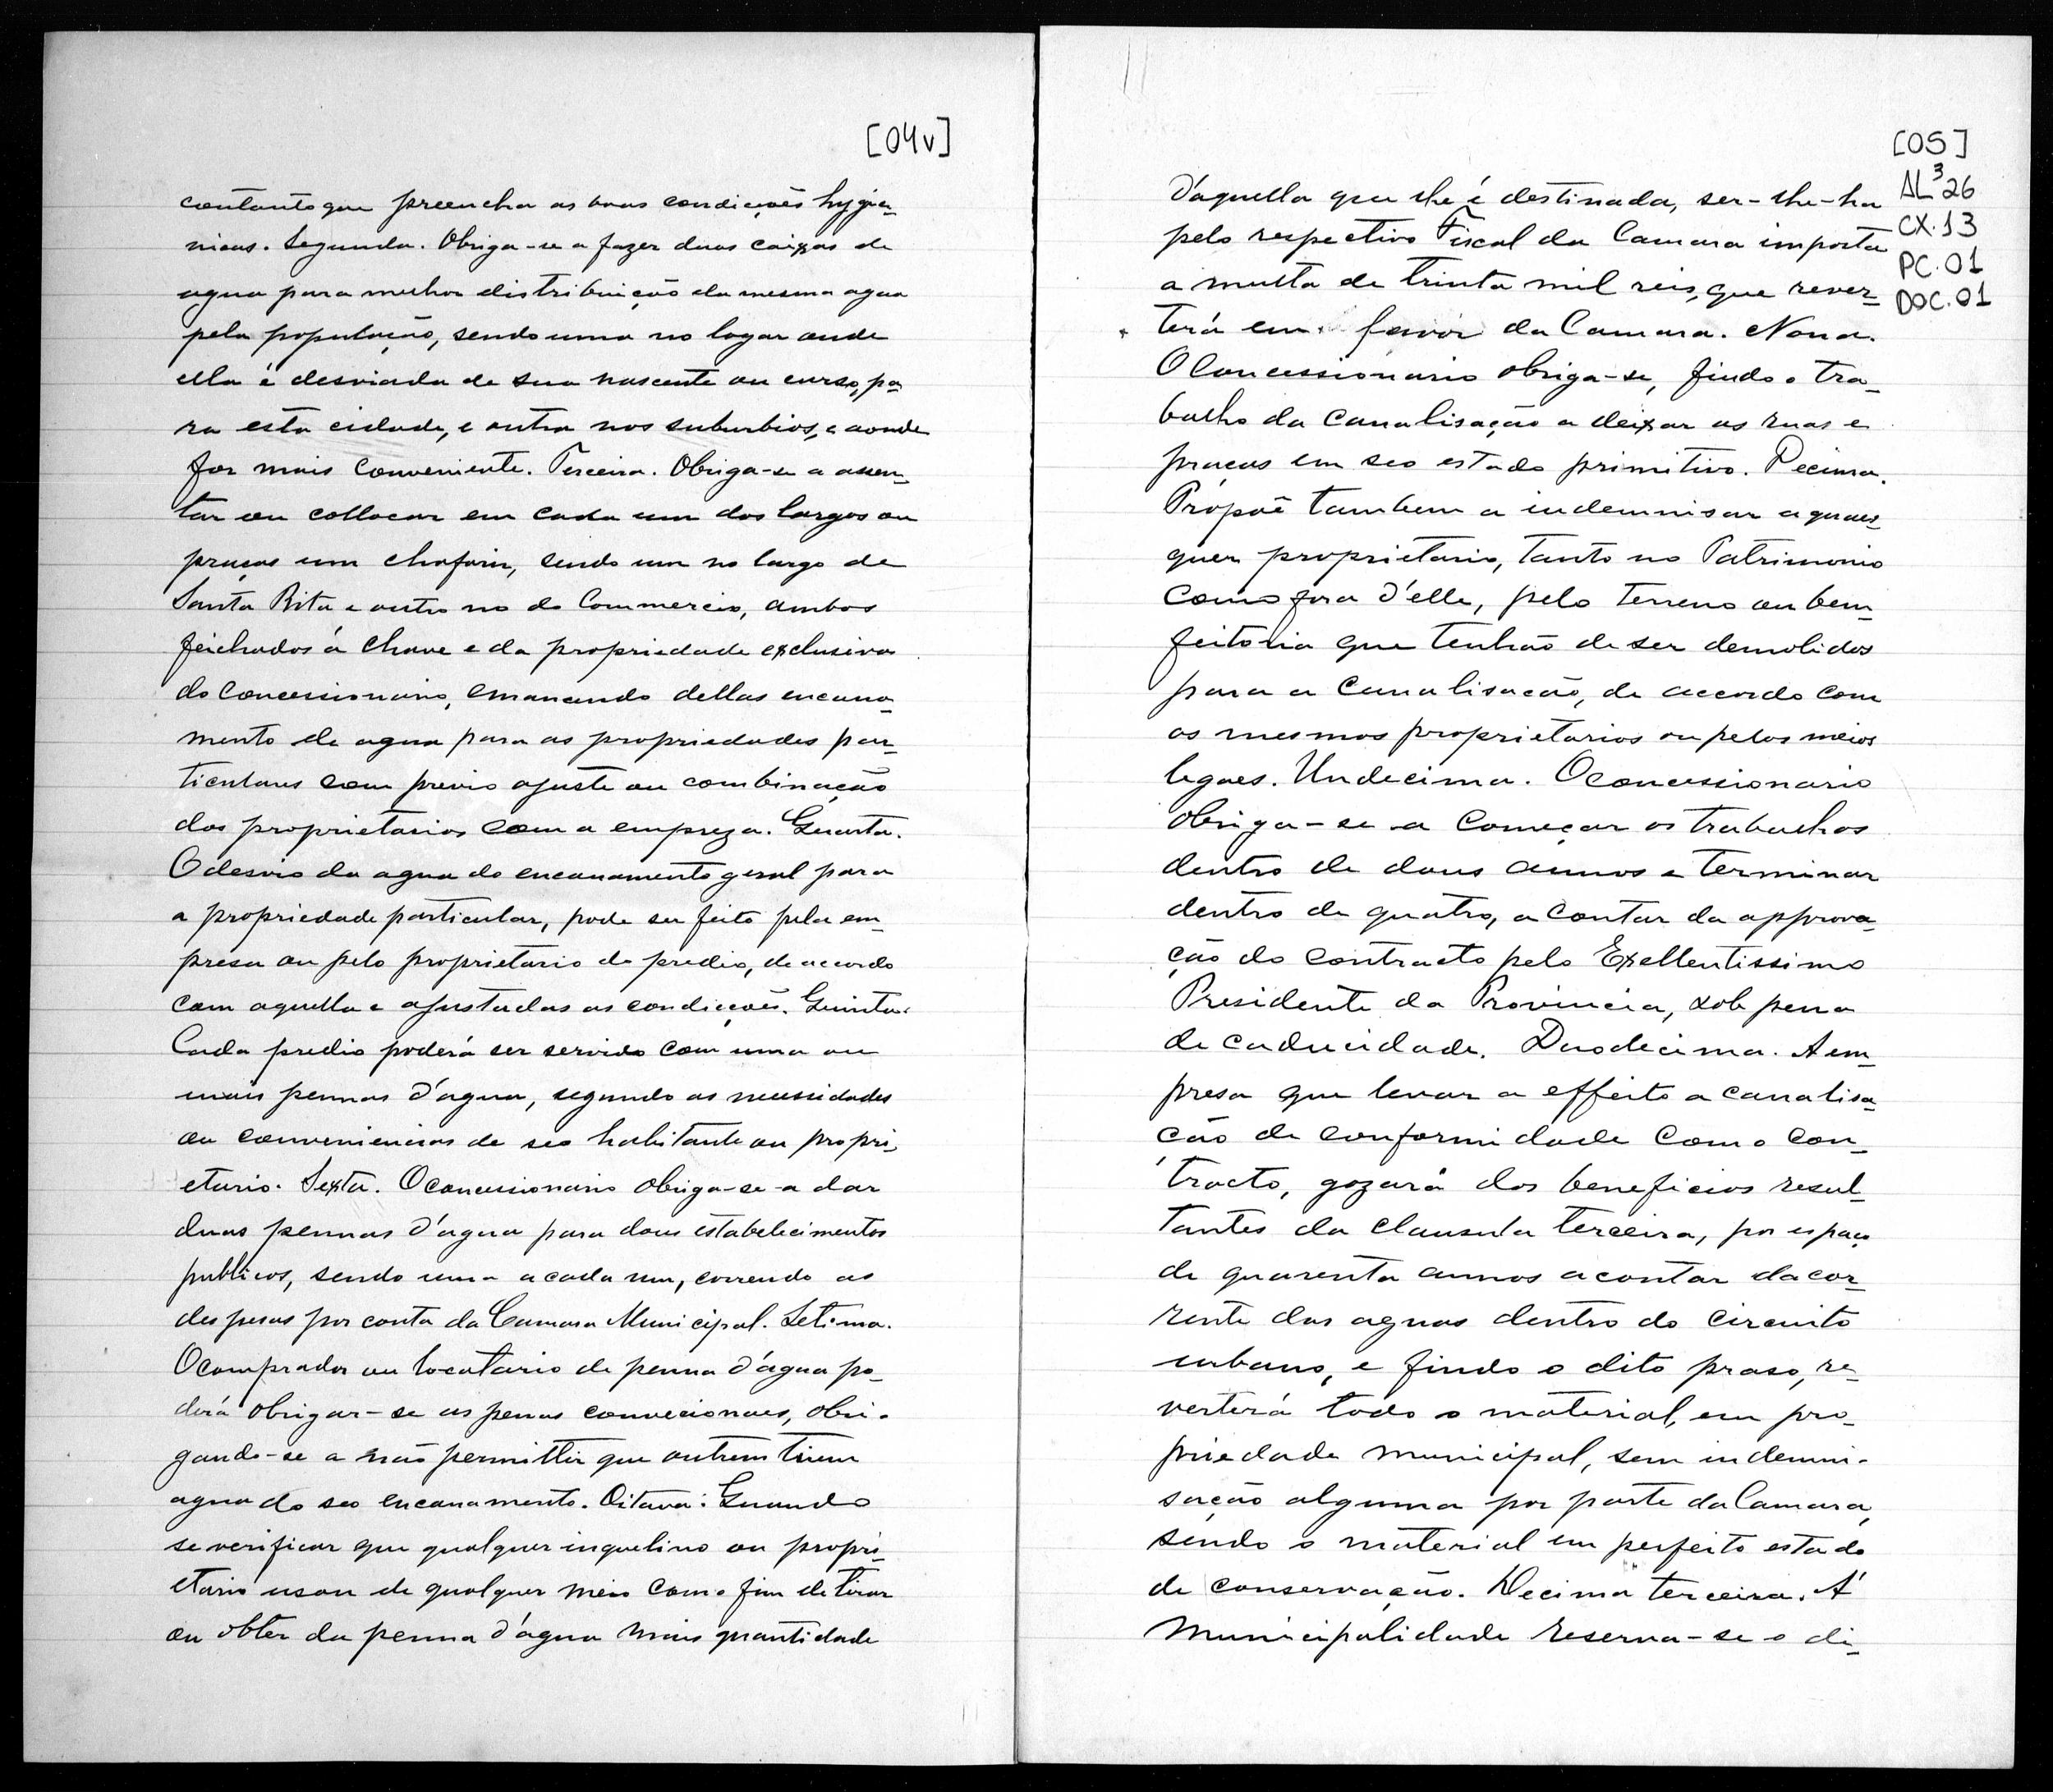 [04v]
contanto que preencha as boas condicções hygie-
nicas. Segunda. Obriga-se a fazer duas caixas de
agua para melhor distribuição da mesma agua
pela população, sendo uma no logar onde
ella é desviada de sua nascente ou curso, pa-
ra esta cidade, e outra nos suburbios, e aonde
for mais conveniente. Terceira. Obriga-se a assen-
tar ou collocar em cada um dos largos ou
praças um chafariz, sendo um no largo de
Santa Rita e outro no do Commercio, ambos
feichados á chave e da propriedade exclusiva
do Concessionario, emanando dellas encana-
mento de agua para as propriedades par-
ticulares com previo ajuste ou combinação
dos proprietarios com a empreza. Quarta.
O desvio da agua do encanamento geral para
a propriedade particular, pode ser feito pela em-
presa ou pelo proprietario do predio, de accordo
com aquella e ajustadas as condicções. Quinta.
Cada predio poderá ser servido com uma ou
mais pennas d'agua, segundo as necessidades
ou conveniencias de seo habitante ou propri-
etario. Sexta. O concessionario obriga-se a dar
duas pennas d'agua para dous estabelecimentos
publicos, sendo uma a cada um, correndo as
despesas por conta da Camara Municipal. Setima.
O comprador ou locatario de penna d'agua po-
derá obrigar-se as penas convecionaes, obri-
gando-se a não permittir que outrem tirem
agua do seo encanamento. Oitava: Quando
se verificar que qualquer inquelino ou propri-
etario usou de qualquer meio com o fim de tirar
ou obter da penna d'agua mais quantidade
[05]
AL³26
CX.13
PC.01
DOC.01
D'aquella que lhe é destinada, ser-lhe-ha
pelo respectivo Fiscal da Camara imposta
a multa de trinta mil reis, que rever-
terá em favor da Camara. Nona.
O Concessionario obriga-se, findo o tra-
balho da canalisação a deixar as ruas e
praças em seo estado primitivo. Decima.
Propoẽ tambem a indemnisar a quaes-
quer proprietario, tanto no Patrimonio
como fora d'elle, pelo terreno ou bem-
feitoria que tenhão de ser demolidos
para a canalisação, de accordo com
os mesmos proprietarios ou pelos meios
legaes. Undecima. O concessionario
obriga-se a começar os trabalhos
dentro de dous annos e terminar
dentro de quatro, a contar da approva-
ção do contracto pelo Exellentissimo
Presidente da Provincia, sob pena
de caducidade. Duodecima. A em-
presa que levar a effeito a canalisa-
ção de conformidade com o con-
tracto, gozará dos beneficios resul-
tantes da clausula terceira, por espaço
de quarenta annos a contar da cor-
rente das aguas dentro do circuito
urbano, e findo o dito praso, re-
verterá todo o material, em pro-
priedade municipal, sem indemni-
sação alguma por parte da Camara,
sendo o material em perfeito estado
de conservação. Decima terceira. Á
Municipalidade reserva-se o di-